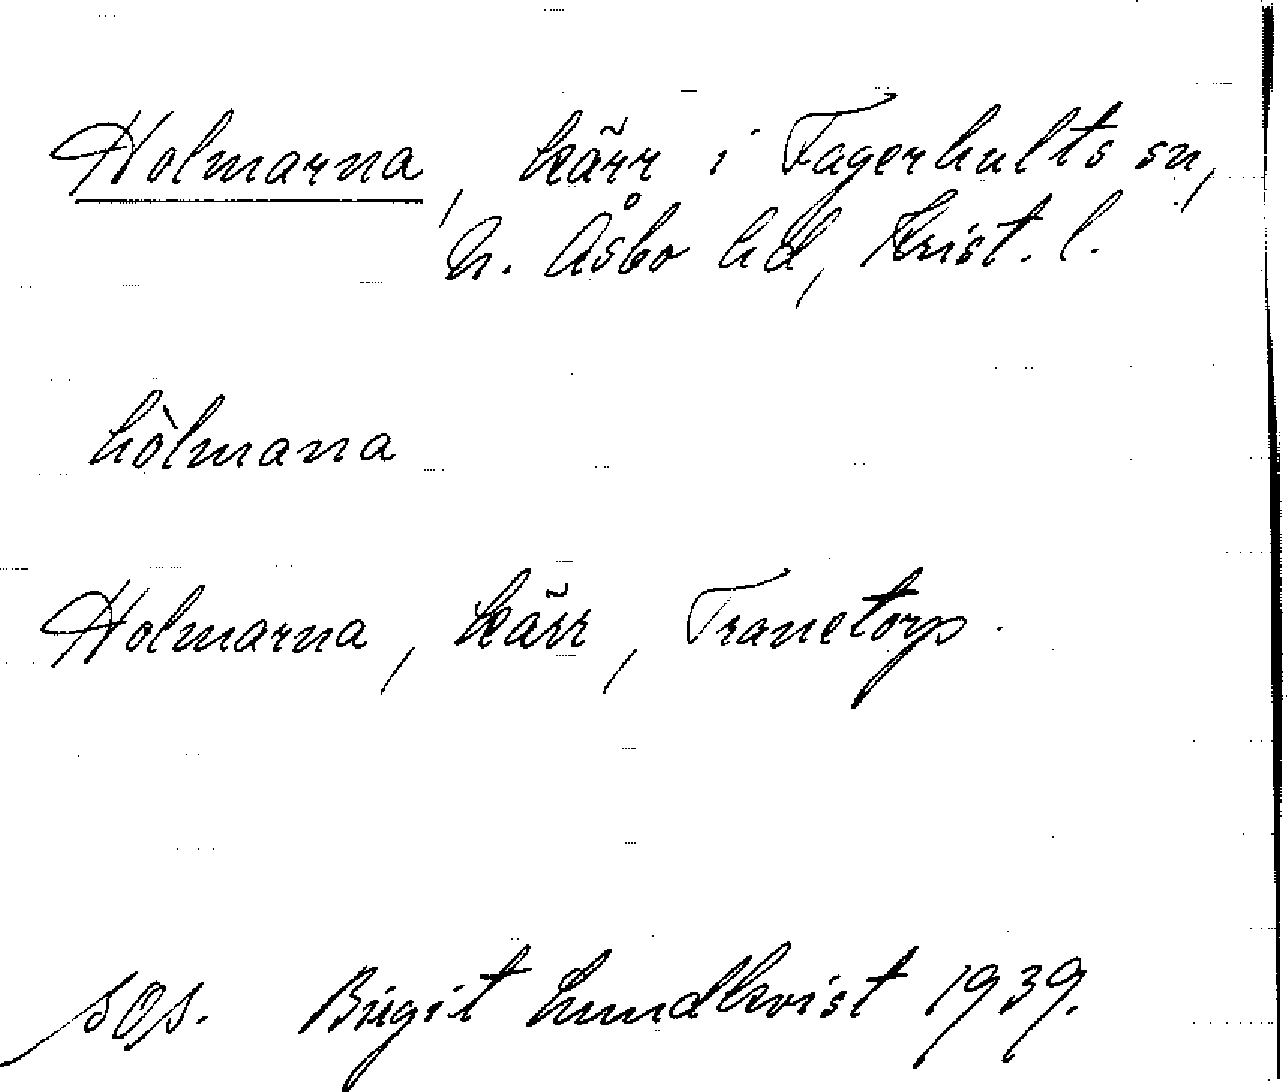 Holmarna, kärr i Fagerhults sn,
N. Åsbo hd, Krist. l.
hòlmana
Holmarna, kärr, Tranetorp.
SOS. Birgit Lundkvist 1939.